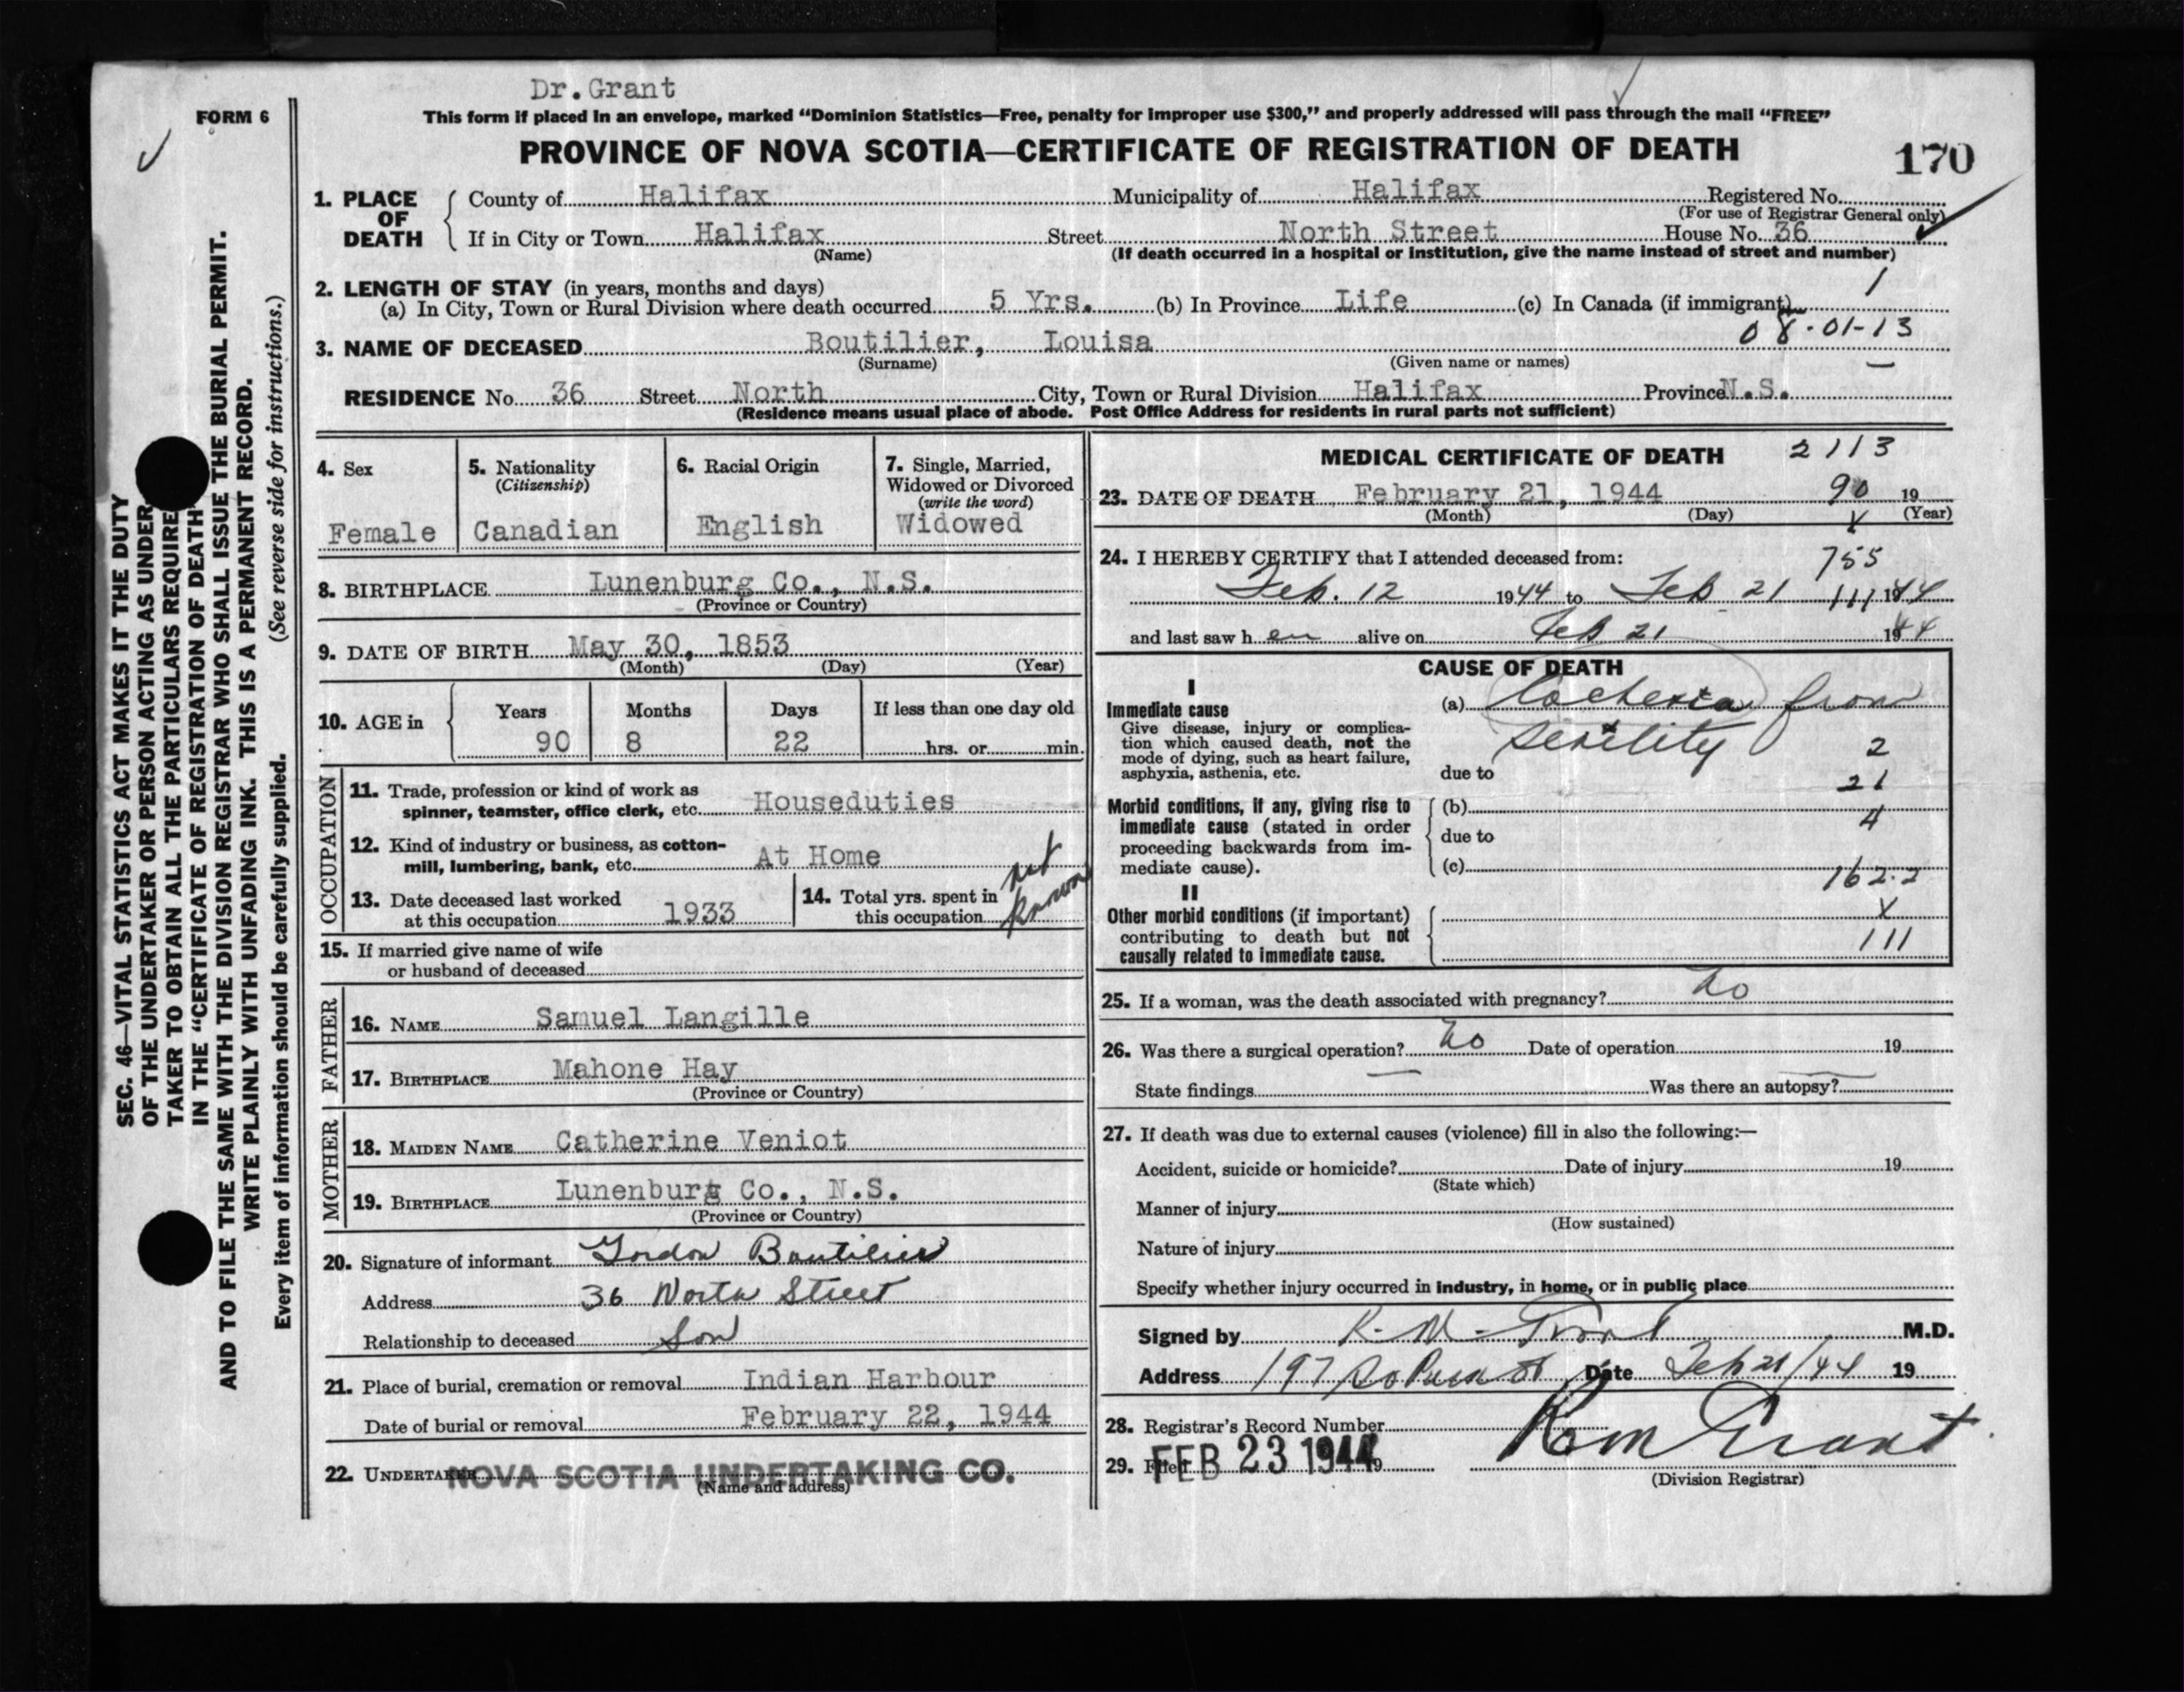 Dr. Grant
FORM 6
This form if placed in an envelope, marked "Dominion Statistics—Free, penalty for improper use $300," and properly addressed will pass through the mail "FREE"
PROVINCE OF NOVA SCOTIA—CERTIFICATE OF REGISTRATION OF DEATH 170
1. PLACE OF DEATH
County of Halifax Municipality of Halifax Registered No.
(For use of Registrar General only)
If in City or Town Halifax Street North Street House No. 36
(Name) (If death occurred in a hospital or institution, give the name instead of street and number)
2. LENGTH OF STAY (in years, months and days) 1
(a) In City, Town or Rural Division where death occurred 5 Yrs. (b) In Province Life (c) In Canada (if immigrant)
08-01-13
3. NAME OF DECEASED Boutilier, Louisa
(Surname) (Given name or names)
RESIDENCE No. 36 Street North City, Town or Rural Division Halifax Province N.S.
(Residence means usual place of abode. Post Office Address for residents in rural parts not sufficient)
4. Sex
Female
5. Nationality
(Citizenship)
Canadian
6. Racial Origin
English
7. Single, Married,
Widowed or Divorced
(write the word)
Widowed
8. BIRTHPLACE Lunenburg Co., N.S.
(Province or Country)
9. DATE OF BIRTH May 30, 1853
(Month) (Day) (Year)
10. AGE in
Years Months Days If less than one day old
90 8 22 hrs. or min.
OCCUPATION
11. Trade, profession or kind of work as
spinner, teamster, office clerk, etc. Houseduties
12. Kind of industry or business, as cotton-
mill, lumbering, bank, etc. At Home
13. Date deceased last worked
at this occupation 1933
14. Total yrs. spent in
this occupation not known
15. If married give name of wife
or husband of deceased
FATHER
16. NAME Samuel Langille
17. BIRTHPLACE Mahone Hay
(Province or Country)
MOTHER
18. MAIDEN NAME Catherine Veniot
19. BIRTHPLACE Lunenburg Co., N.S.
(Province or Country)
20. Signature of informant Gordon Boutilier
Address 36 North Street
Relationship to deceased Son
21. Place of burial, cremation or removal Indian Harbour
Date of burial or removal February 22, 1944
22. UNDERTAKER NOVA SCOTIA UNDERTAKING CO.
(Name and address)
MEDICAL CERTIFICATE OF DEATH 2113
23. DATE OF DEATH February 21, 1944 90 19
(Month) (Day) (Year)
24. I HEREBY CERTIFY that I attended deceased from: 755
Feb. 12 1944 to Feb 21 111 1944
and last saw h er alive on Feb 21 1944
CAUSE OF DEATH
I
Immediate cause
Give disease, injury or complica-
tion which caused death, not the
mode of dying, such as heart failure,
asphyxia, asthenia, etc.
(a) Cachexia from
senility 2
due to
21
Morbid conditions, if any, giving rise to
immediate cause (stated in order
proceeding backwards from im-
mediate cause).
(b)
4
due to
(c)
162.2
II
Other morbid conditions (if important)
contributing to death but not
causally related to immediate cause.
X
111
25. If a woman, was the death associated with pregnancy? No
26. Was there a surgical operation? No Date of operation 19
State findings Was there an autopsy?
27. If death was due to external causes (violence) fill in also the following:—
Accident, suicide or homicide? Date of injury 19
(State which)
Manner of injury
(How sustained)
Nature of injury
Specify whether injury occurred in industry, in home, or in public place
Signed by R. M. Grant M.D.
Address 197 Date Feb 21/44 19
28. Registrar's Record Number
29. Filed FEB 23 1944 19
(Division Registrar)
SEC. 46—VITAL STATISTICS ACT MAKES IT THE DUTY
OF THE UNDERTAKER OR PERSON ACTING AS UNDER
TAKER TO OBTAIN ALL THE PARTICULARS REQUIRE
IN THE "CERTIFICATE OF REGISTRATION OF DEATH
AND TO FILE THE SAME WITH THE DIVISION REGISTRAR WHO SHALL ISSUE THE BURIAL PERMIT.
WRITE PLAINLY WITH UNFADING INK. THIS IS A PERMANENT RECORD.
Every item of information should be carefully supplied. (See reverse side for instructions.)